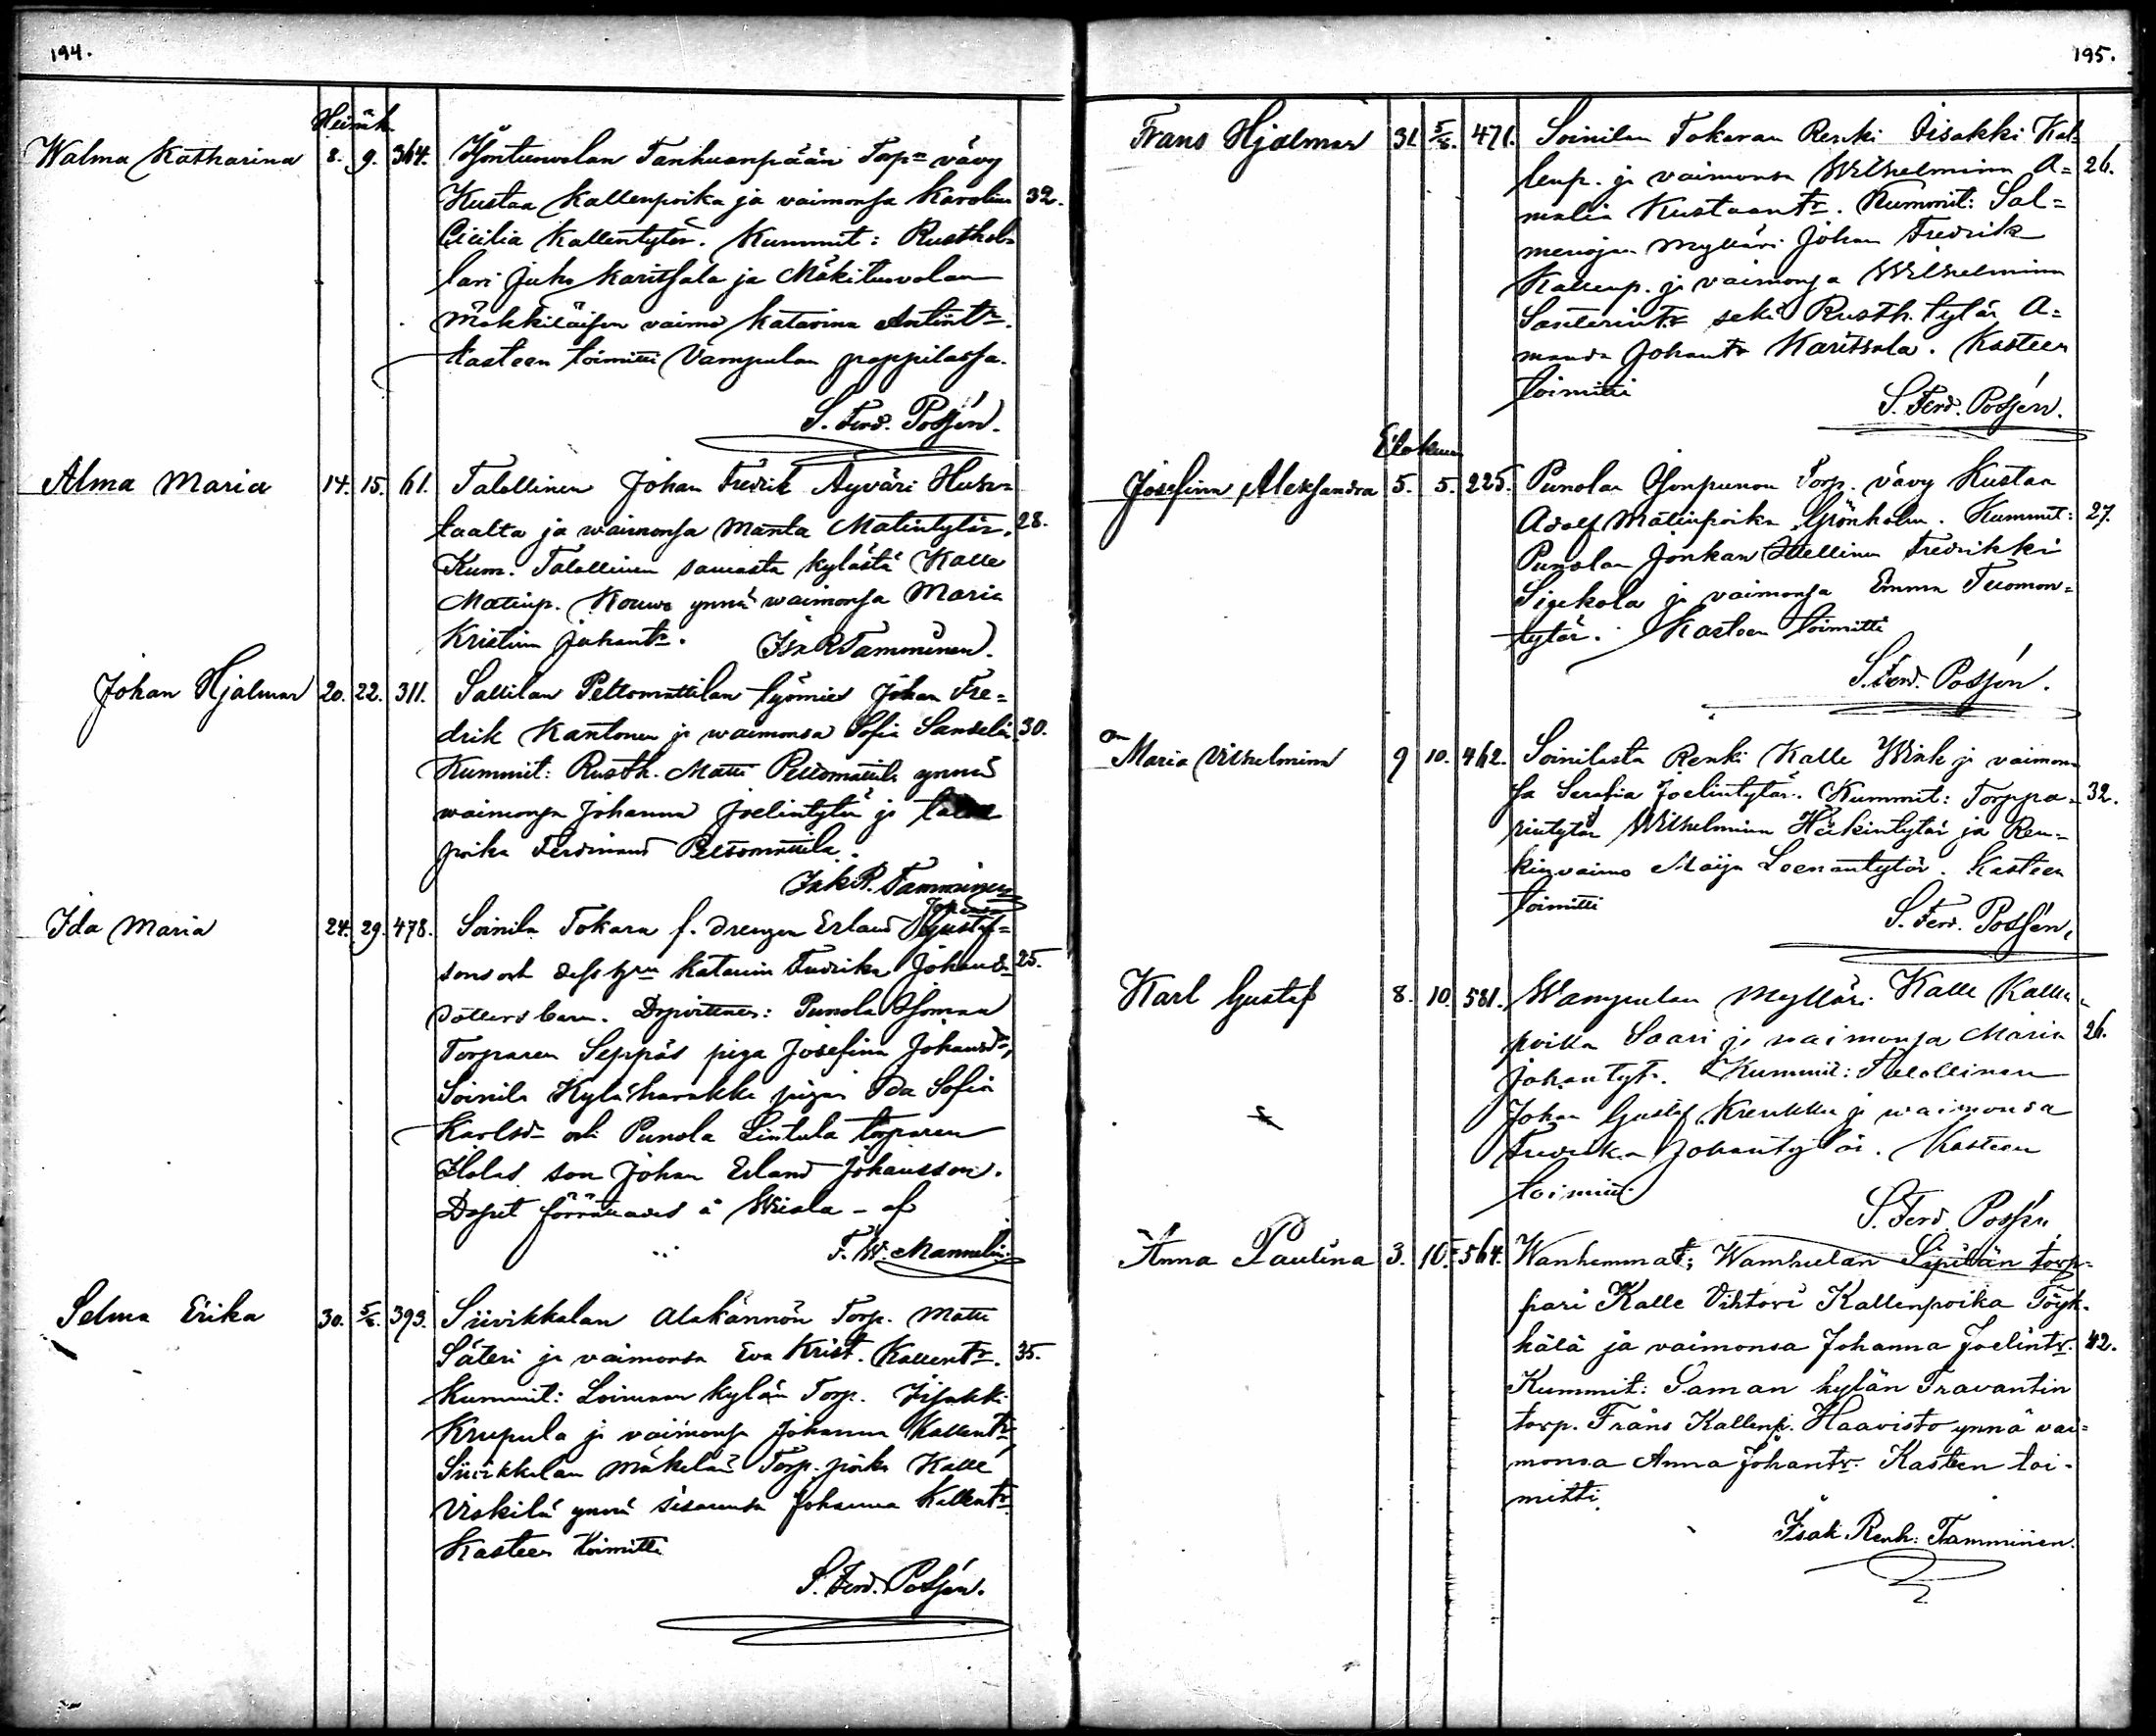 194.
Heinäk.
Walma Katharina 8. 9. 364. Isontuvolan Tanhuanpään Torp:n vävy
Kustaa Kallenpoika ja vaimonsa Karolina 32.
Cicilia Kallentytär. Kummit: Rusthol-
lari Juho Karitsala ja Mäkituvolan
Mökkiläisen vaimo Katarina Antint:r.
Kasteen toimitti Vampulan pappilassa.
S. Ferd. Possén.
Alma Maria 14. 15. 61. Talollinen Johan Fredrik Äyväri Huh-
taalta ja waimonsa Manta Matintytär. 28.
Kum. Talollinen samasta kylästä Kalle
Matinp. Kouwo ynnä waimonsa Maria
Kristiina Juhant:r. Isk R Tamminen.
Johan Hjalmar 20. 22. 311. Sallilan Peltomattilan työmies Johan Fre-
drik Kantonen ja waimonsa Sofia Sandelin 30.
Kummit: Rusth. Matti Peltomattila ynnä
waimonsa Johanna Joelintytär ja
poika Ferdinand Peltomattila.
Isk R. Tamminen
Ida Maria 24. 29. 478. Soinila Tokara f. drengen Erland Gustaf-
sons och dess h:ru Katarina Fredrika Johans- 25.
dotters barn. Dopvittnen: Punola
Torparen Seppäs piga Josefina Johansd:r,
Soinila Kyläharakka pigan Ida Sofia
Karlsd:r och Punola Lintula torparen
Ilolas son Johan Erland Johansson.
Dopet förrättades å Wiala - af
F. W. Mannelin.
Selma Erika 30. 5/8. 393. Siivikkalan Alakännön Torp. Matti
Säteri ja vaimonsa Eva Krist. Kallent:r. 35.
Kummit: Loimaan kylän Torp. Iisakki
Krupula ja vaimonsa Johanna Kallent:r,
Siivikkalan Mäkelän Torp. poika Kalle
Viskilä ynnä sisarensa Johanna Kallent:r
Kasteen toimitti
S. Ferd. Possén.
195.
Frans Hjalmar 31 5/8. 471. Soinilan Tokaran Renki Iisakki Kal-
lenp. ja vaimonsa Wilhelmina A- 26.
malia Kustaant:r. Kummit: Sal-
menojan Mylläri Johan Fredrik
Kallenp. ja vaimonsa Wilhelmina
Santerint:r sekä Rusth. tytär A-
manda Johant:r Karitsala. Kasteen
toimitti
S. Ferd. Possén.
Elokuu
Josefina Aleksandra 5. 5. 225. Punolan Isonpunon Torp. vävy Kustaa
Adolf Matinpoika Grönholm. Kummit: 27.
Punolan Jonkan Itsellinen Fredrikki
Sipekola ja vaimonsa Emma Tuomon-
tytär. Kasteen toimitti
S. Ferd. Possén.
Maria Vilhelmina 9 10. 462. Soinilasta Renki Kalle Wink ja vaimon-
sa Serafia Joelintytär. Kummit: Torppa- 32.
rintytär Wilhelmina Häkintytär ja Ren-
kinvaimo Maija Leenantytär. Kasteen
toimitti
S. Ferd. Possén,
Karl Gustaf 8. 10. 581. Wampulan Mylläri Kalle Kallen-
poika Saari ja waimonsa Maria 26.
Johantyt:r. Kummit: Talollinen
Johan Gustaf Krenkku ja waimonsa
Fredrika Johantytär. Kasteen
toimitti
S. Ferd. Possén
Anna Paulina 3. 10. 564. Wanhemmat; Wambulan Sipilän torp-
pari Kalle Vihtori Kallenpoika Töyk-
kälä ja vaimonsa Johanna Joelintr. 42.
Kummit: Saman kylän Travantin
torp. Frans Kallenp. Haavisto ynnä vai-
monsa Anna Johantr. Kasteen toi-
mitti
Isak Renh: Tamminen.